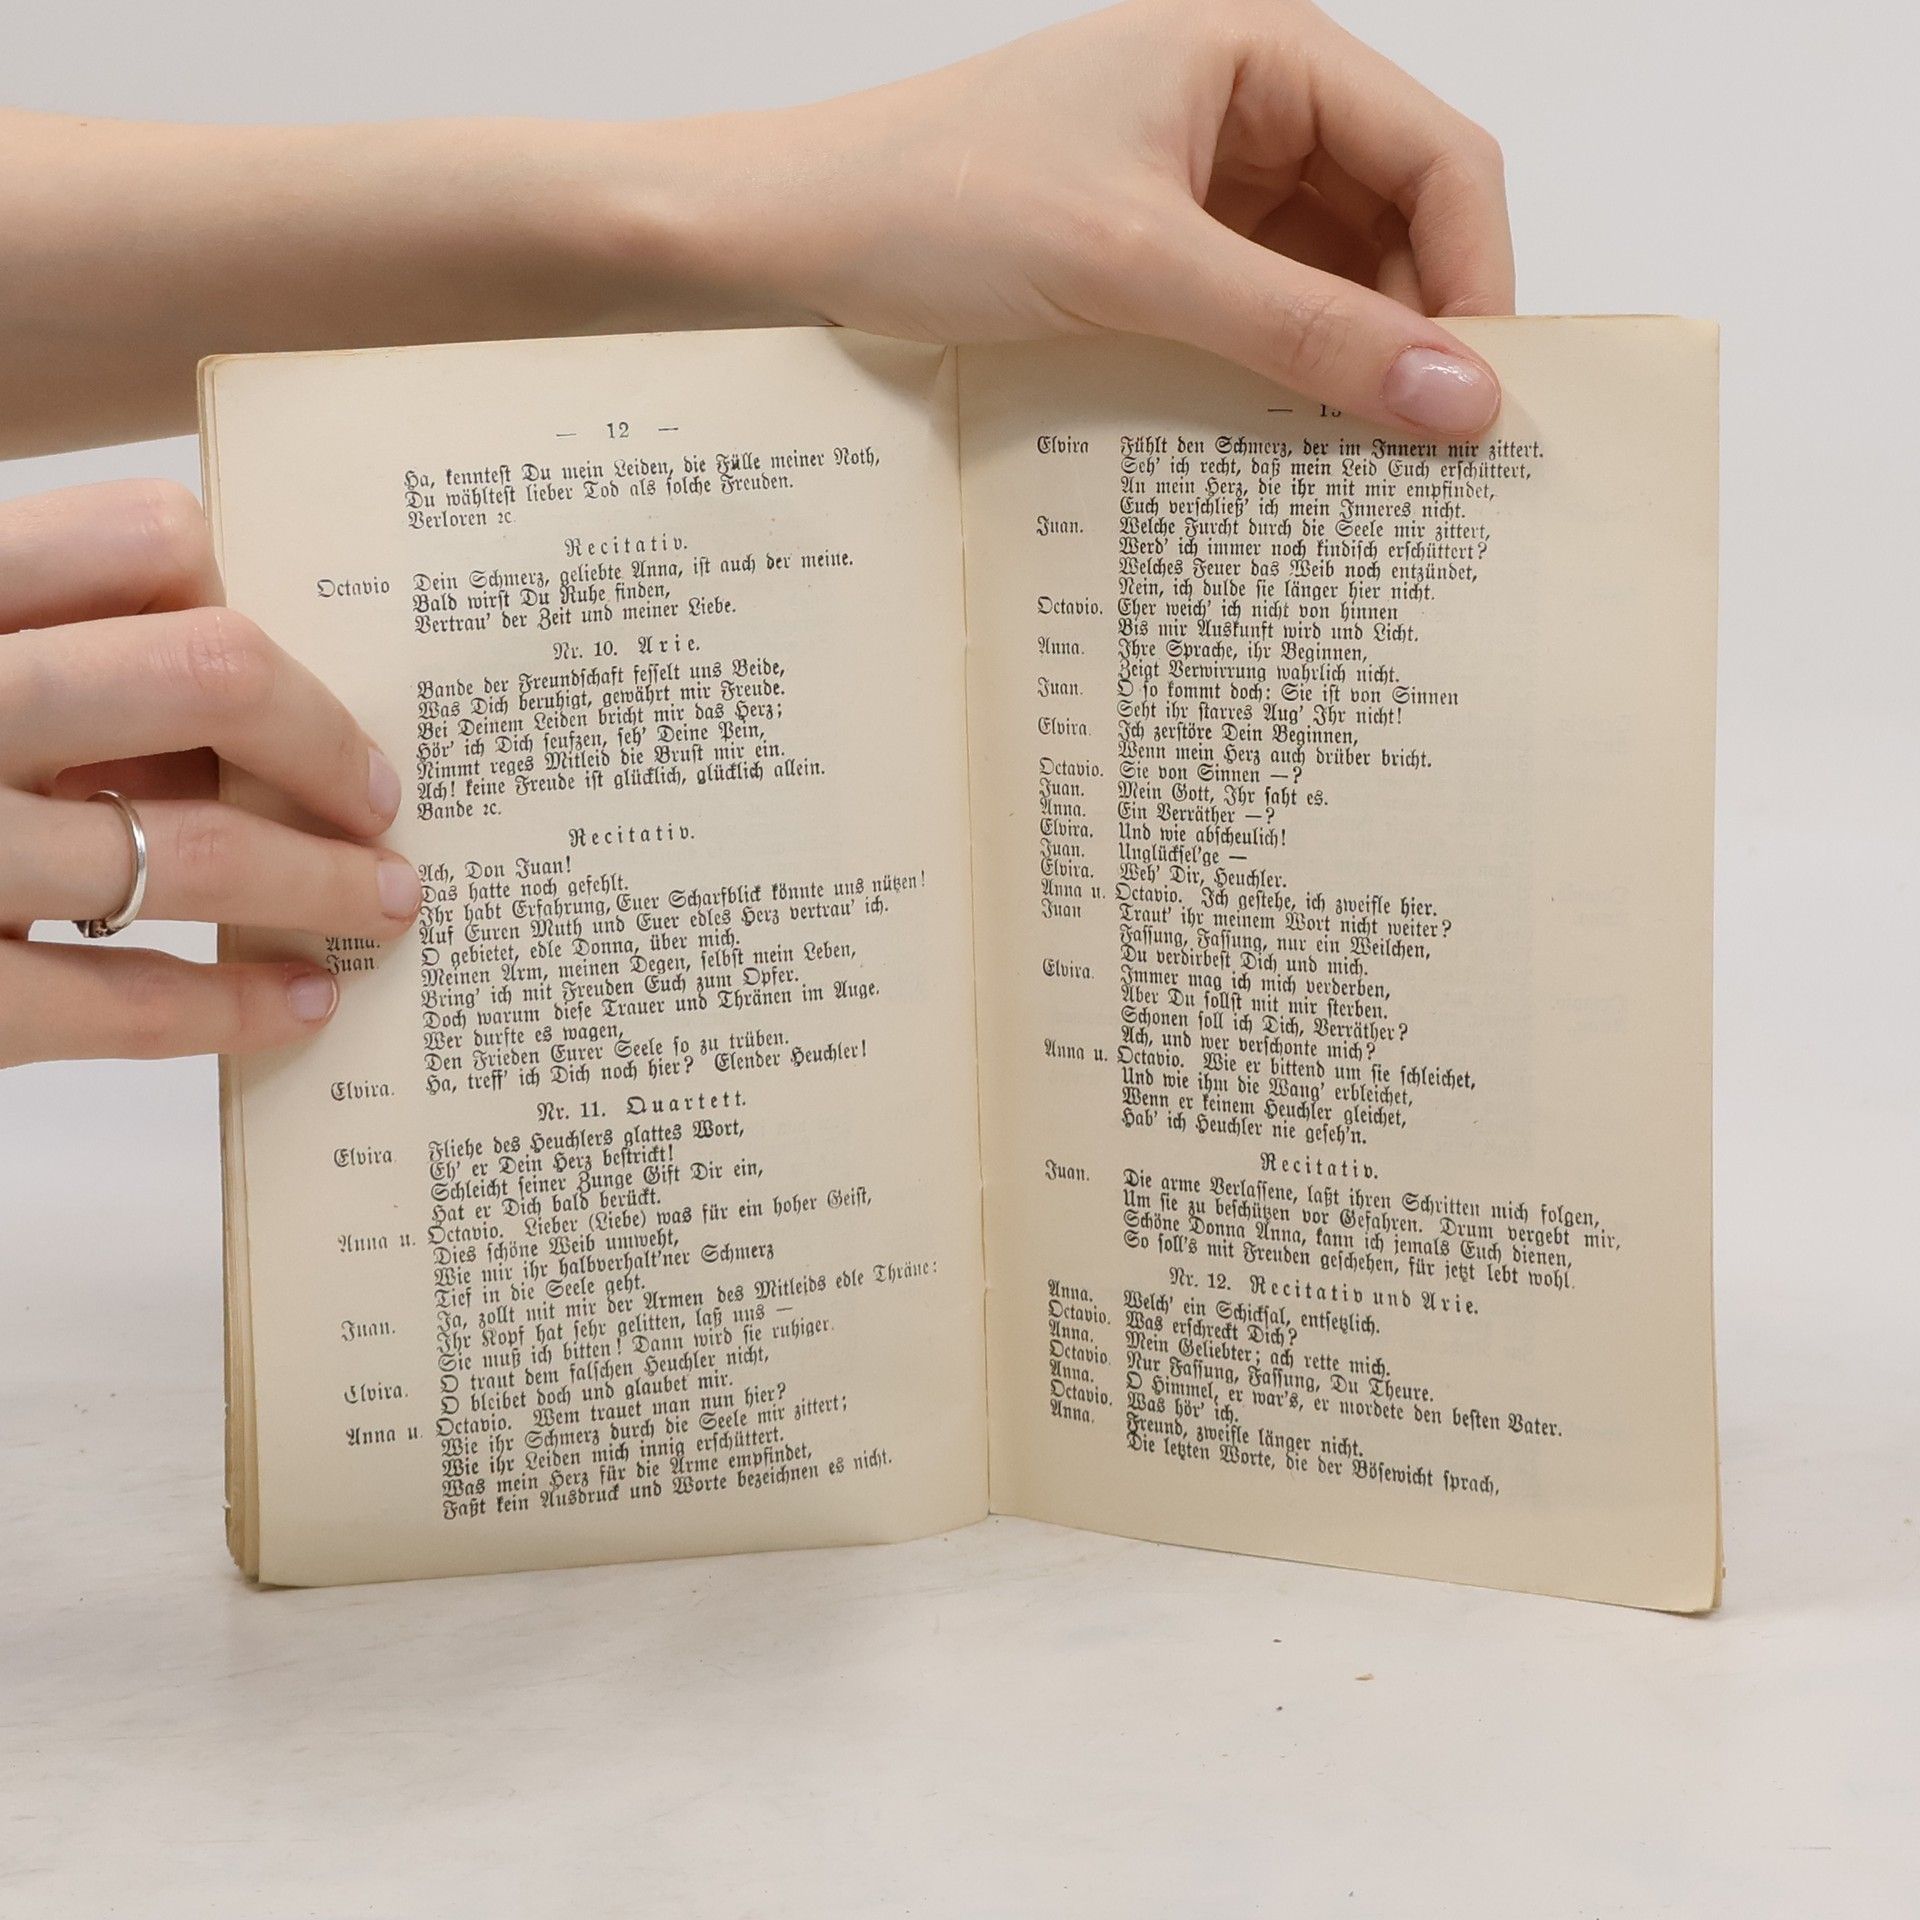 — 12 —
Ha, kenntest Du mein Leiden, die Fülle meiner Noth,
Du wähltest lieber Tod als solche Freuden.
Verloren ꝛc.
Recitativ.
Octavio Dein Schmerz, geliebte Anna, ist auch der meine.
Bald wirst Du Ruhe finden,
Vertrau' der Zeit und meiner Liebe.
Nr. 10. Arie.
Bande der Freundschaft fesselt uns Beide,
Was Dich beruhigt, gewährt mir Freude.
Bei Deinem Leiden bricht mir das Herz;
Hör' ich Dich seufzen, seh' Deine Pein,
Nimmt reges Mitleid die Brust mir ein.
Ach! keine Freude ist glücklich, glücklich allein.
Bande ꝛc.
Recitativ.
Ach, Don Juan!
Das hatte noch gefehlt.
Ihr habt Erfahrung, Euer Scharfblick könnte uns nützen!
Auf Euren Muth und Euer edles Herz vertrau' ich.
Anna. O gebietet, edle Donna, über mich.
Juan. Meinen Arm, meinen Degen, selbst mein Leben,
Bring' ich mit Freuden Euch zum Opfer.
Doch warum diese Trauer und Thränen im Auge.
Wer durfte es wagen,
Den Frieden Eurer Seele so zu trüben.
Elvira. Ha, treff' ich Dich noch hier? Elender Heuchler!
Nr. 11. Quartett.
Elvira. Fliehe des Heuchlers glattes Wort,
Eh' er Dein Herz bestrickt!
Schleicht seiner Zunge Gift Dir ein,
Hat er Dich bald berückt.
Anna u. Octavio. Lieber (Liebe) was für ein hoher Geist,
Dies schöne Weib umweht,
Wie mir ihr halbverhalt'ner Schmerz
Tief in die Seele geht.
Juan. Ja, zollt mit mir der Armen des Mitleids edle Thräne:
Ihr Kopf hat sehr gelitten, laß uns —
Sie muß ich bitten! Dann wird sie ruhiger.
Elvira. O traut dem falschen Heuchler nicht,
O bleibet doch und glaubet mir.
Anna u. Octavio. Wem trauet man nun hier?
Wie ihr Schmerz durch die Seele mir zittert;
Wie ihr Leiden mich innig erschüttert.
Was mein Herz für die Arme empfindet,
Faßt kein Ausdruck und Worte bezeichnen es nicht.
— 13
Elvira Fühlt den Schmerz, der im Innern mir zittert.
Seh' ich recht, daß mein Leid Euch erschüttert,
An mein Herz, die ihr mit mir empfindet,
Euch verschließ' ich mein Inneres nicht.
Juan. Welche Furcht durch die Seele mir zittert,
Werd' ich immer noch kindisch erschüttert?
Welches Feuer das Weib noch entzündet,
Nein, ich dulde sie länger hier nicht.
Octavio. Eher weich' ich nicht von hinnen
Bis mir Auskunft wird und Licht.
Anna. Ihre Sprache, ihr Beginnen,
Zeigt Verwirrung wahrlich nicht.
Juan. O so kommt doch: Sie ist von Sinnen
Seht ihr starres Aug' Ihr nicht!
Elvira. Ich zerstöre Dein Beginnen,
Wenn mein Herz auch drüber bricht.
Octavio. Sie von Sinnen —?
Juan. Mein Gott, Ihr saht es.
Anna. Ein Verräther —?
Elvira. Und wie abscheulich!
Juan. Unglücksel'ge —
Elvira. Weh' Dir, Heuchler.
Anna u. Octavio. Ich gestehe, ich zweifle hier.
Juan Traut' ihr meinem Wort nicht weiter?
Fassung, Fassung, nur ein Weilchen,
Du verdirbest Dich und mich.
Elvira. Immer mag ich mich verderben,
Aber Du sollst mit mir sterben.
Schonen soll ich Dich, Verräther?
Ach, und wer verschonte mich?
Anna u. Octavio. Wie er bittend um sie schleichet,
Und wie ihm die Wang' erbleichet,
Wenn er keinem Heuchler gleichet,
Hab' ich Heuchler nie geseh'n.
Recitativ.
Juan. Die arme Verlassene, laßt ihren Schritten mich folgen,
Um sie zu beschützen vor Gefahren. Drum vergebt mir,
Schöne Donna Anna, kann ich jemals Euch dienen,
So soll's mit Freuden geschehen, für jetzt lebt wohl.
Nr. 12. Recitativ und Arie.
Anna. Welch' ein Schicksal, entsetzlich.
Octavio. Was erschreckt Dich?
Anna. Mein Geliebter; ach rette mich.
Octavio. Nur Fassung, Fassung, Du Theure.
Anna. O Himmel, er war's, er mordete den besten Vater.
Octavio. Was hör' ich.
Anna. Freund, zweifle länger nicht.
Die letzten Worte, die der Bösewicht sprach,